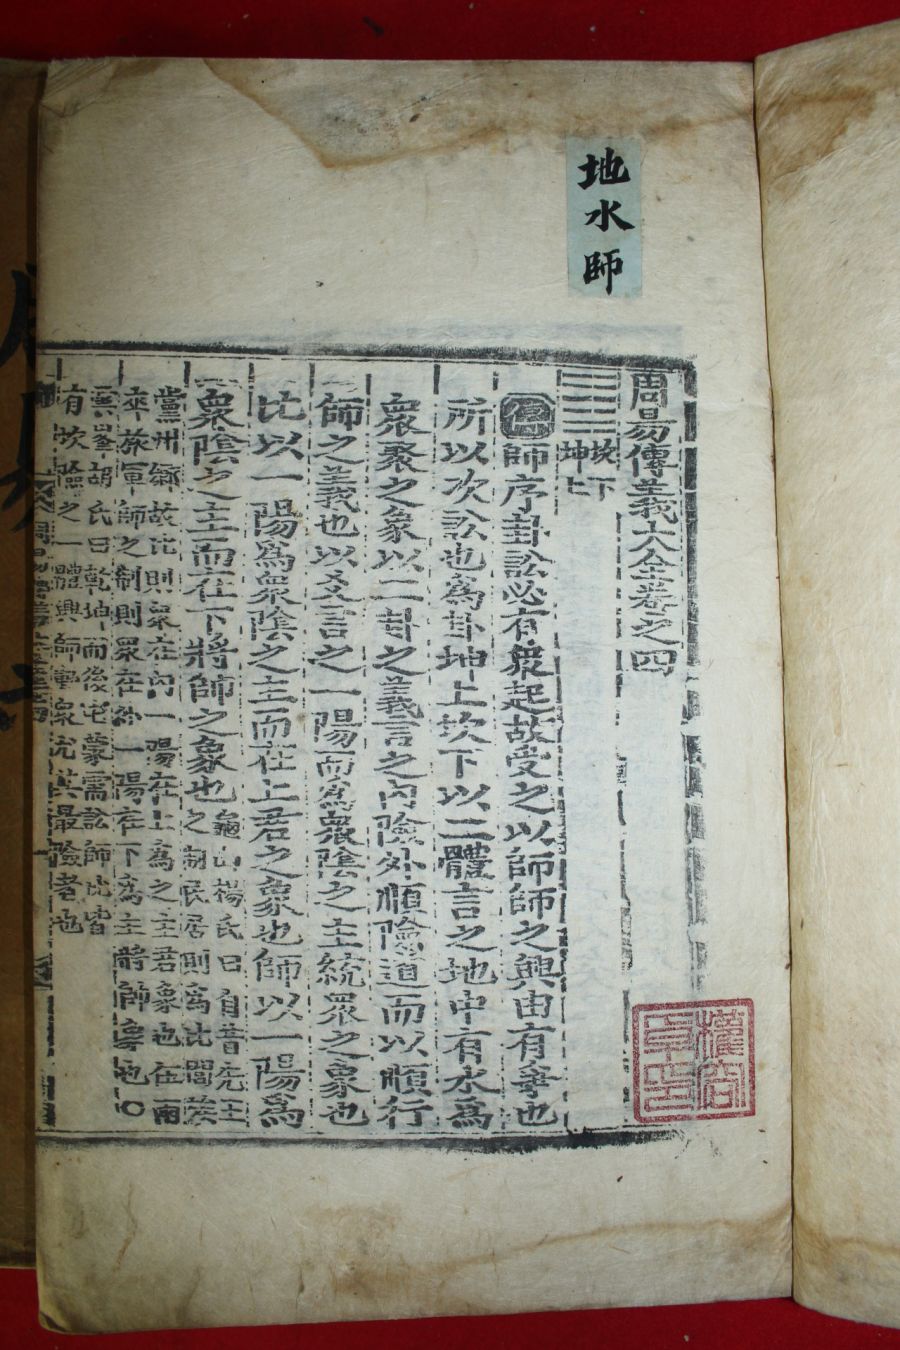 地水師
周易傳義大全卷之四
坎下
坤上
傳師序卦訟必有衆起故受之以師師之興由有爭也
所以次訟也爲卦坤上坎下以二體言之地中有水爲
衆聚之象以二卦之義言之內險外順險道而以順行
師之義也以爻言之一陽而爲衆陰之主統衆之象也
比以一陽爲衆陰之主而在上君之象也師以一陽爲
衆陰之主而在下將師之象也
龜山楊氏曰自昔先王
之制民居則爲比閭族
黨州鄕故比則衆在內一陽在上爲之主君象也在兩
來旅軍師之制則衆在外一陽在下爲主將師象也○
雲峯胡氏曰乾坤而後屯蒙需訟師比皆
有坎險之一體興師動衆尤其最險者也